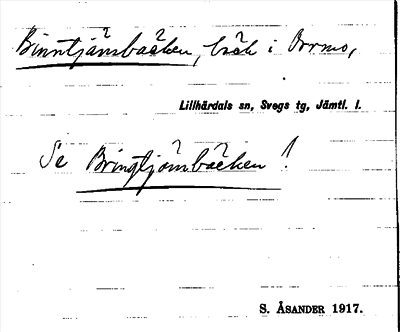 Binntjänsbäcken, bäck i Orrmo,
Lillhärdals sn, Svegs tg, Jämtl. l.
Se Bringtjärnbäcken!
S. ÅSANDER 1917.